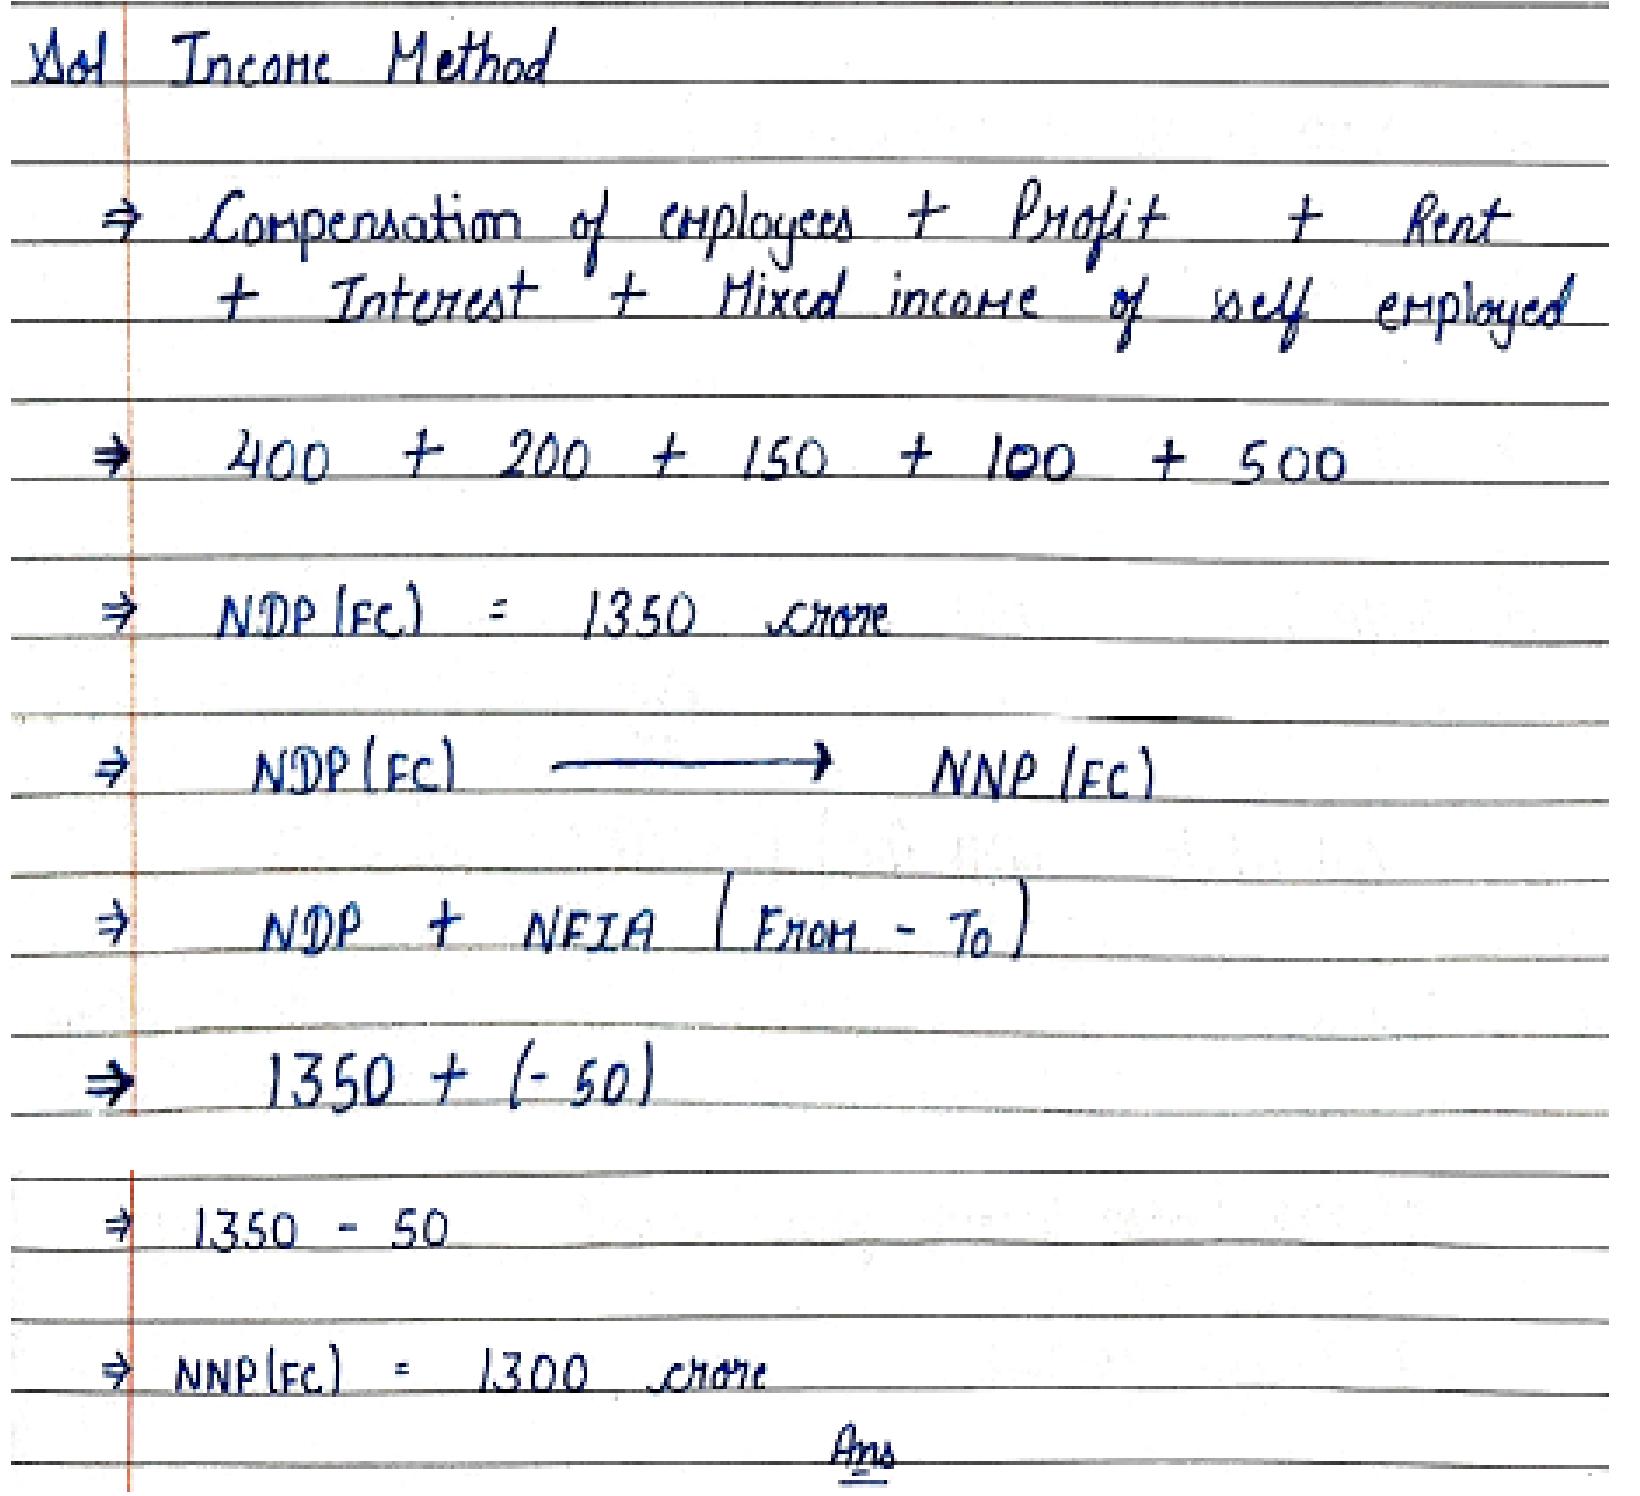 Sol Income Method
⇒ Compensation of employees + Profit + Rent
+ Interest + Mixed income of self employed
⇒ 400 + 200 + 150 + 100 + 500
⇒ NDP (FC) = 1350 crore
⇒ NDP (FC) ⟶ NNP (FC)
⇒ NDP + NFIA (From - To)
⇒ 1350 + (- 50)
⇒ 1350 - 50
⇒ NNP (FC) = 1300 crore
Ans